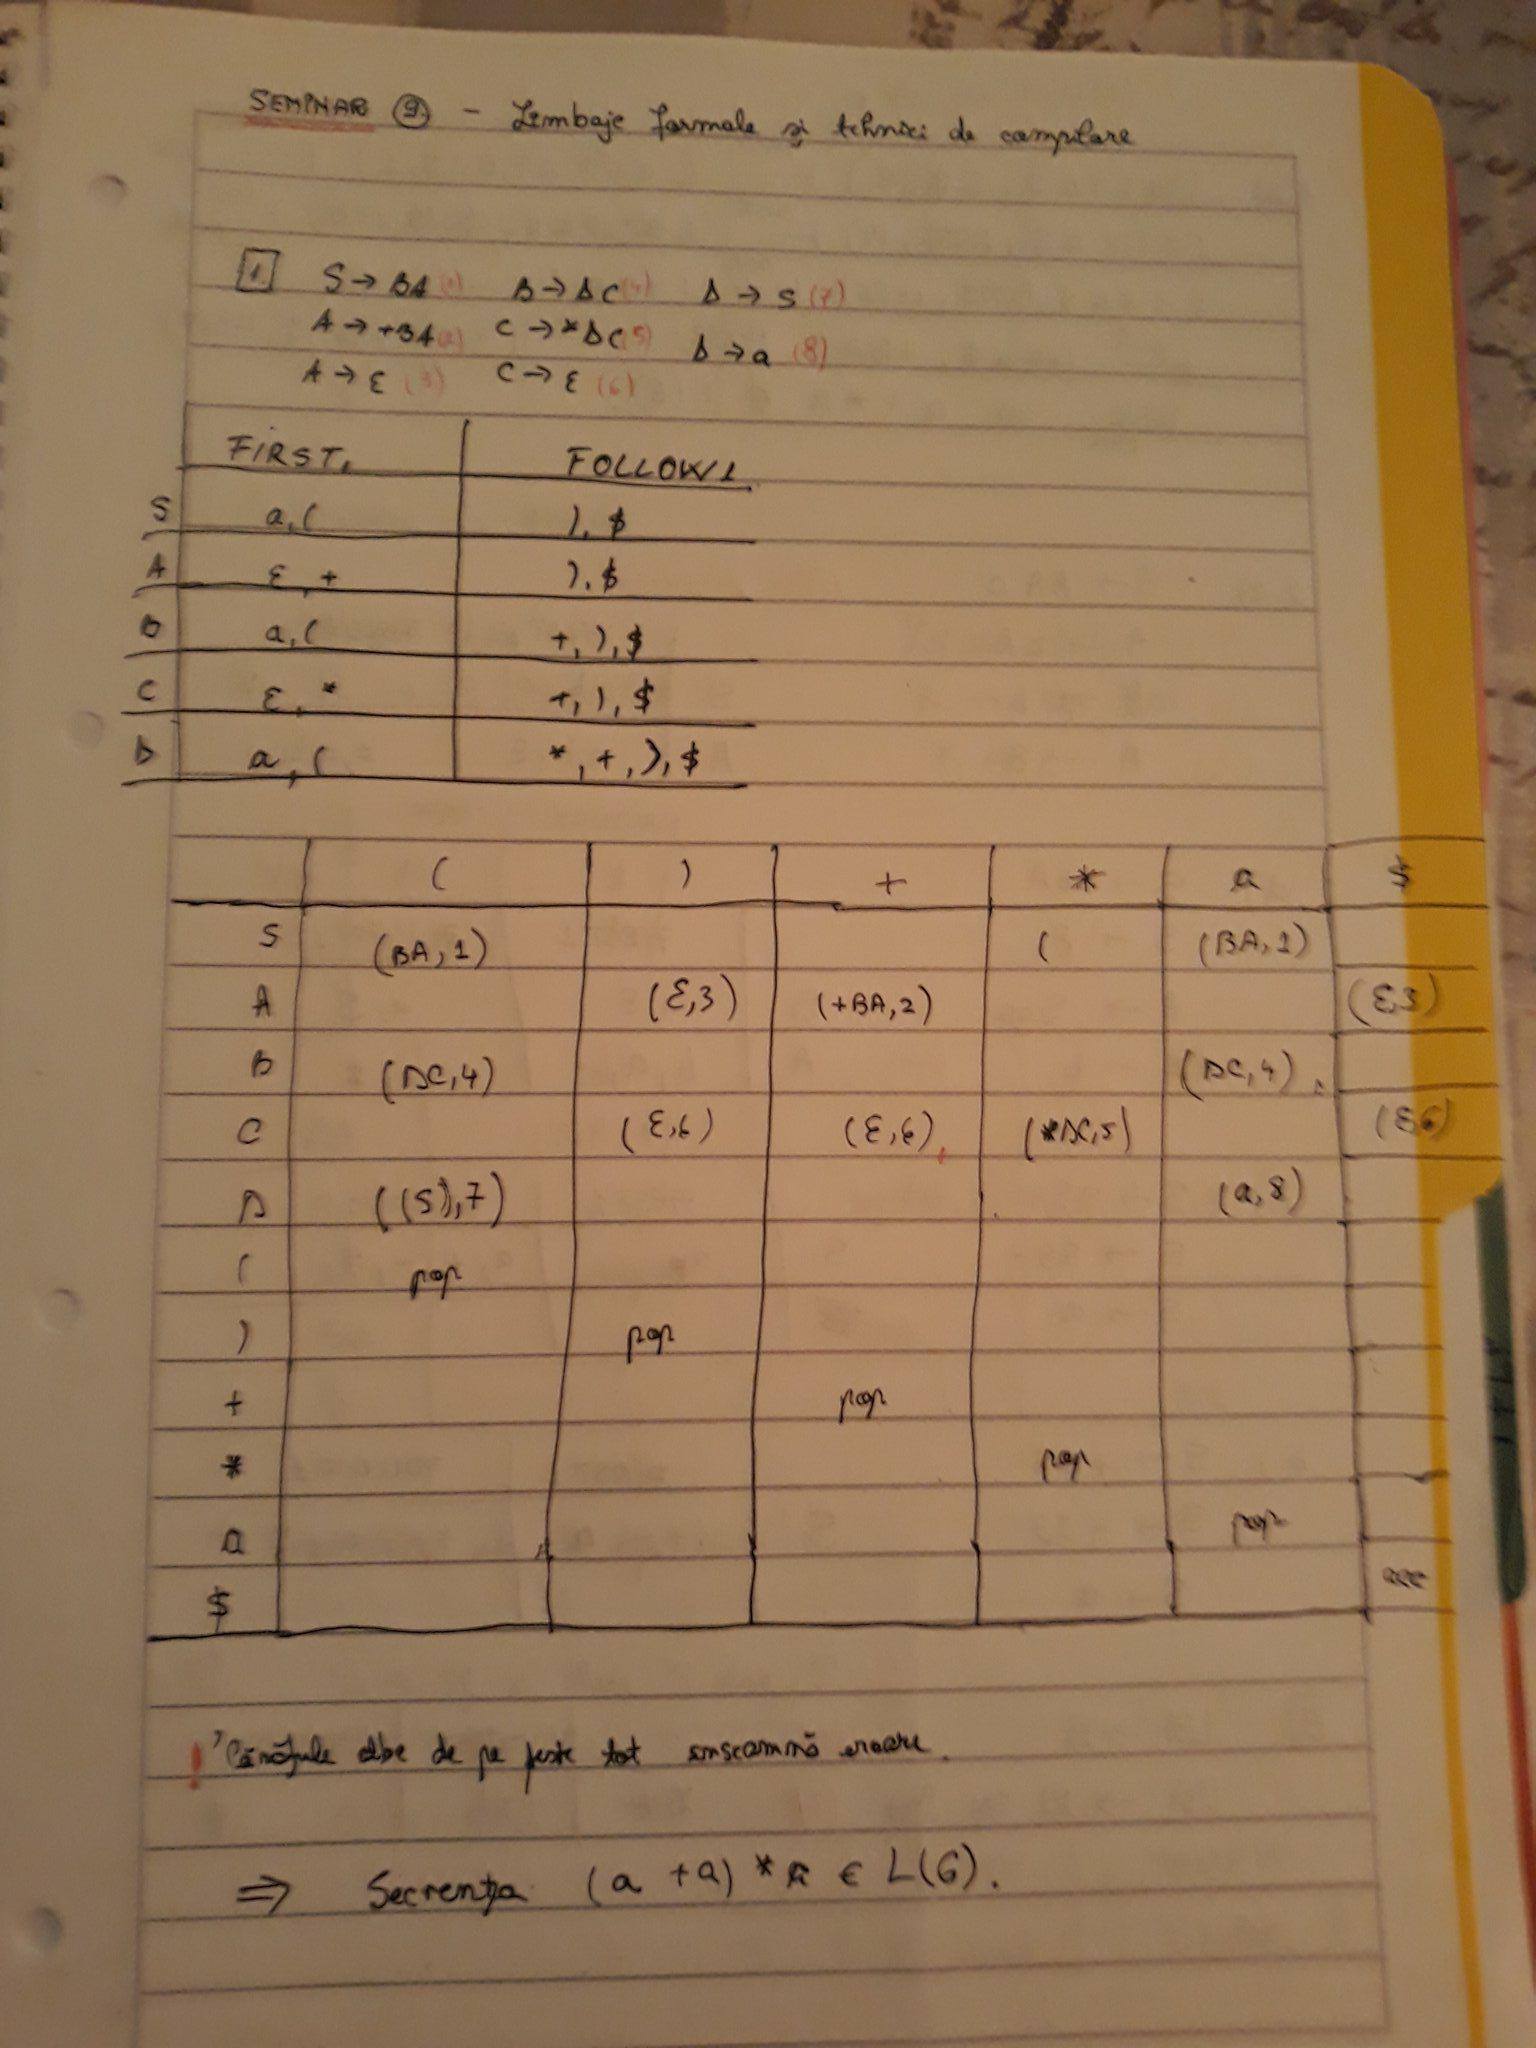 SEMINAR 9. - Limbaje formale și tehnici de compilare
1. S → BA (1) B → DC (4) D → S (7)
A → +BA (2) C → *DC (5) D → a (8)
A → ε (3) C → ε (6)
FIRST1 FOLLOW1
S a, ( ), $
A ε, + ), $
B a, ( +, ), $
C ε, * +, ), $
D a, ( *, +, ), $
( ) + * a $
S (BA, 1) ( (BA, 1)
A (ε,3) (+BA,2) (ε,3)
B (DC,4) (DC,4)
C (ε,6) (ε,6) (*DC,5) (ε,6)
D ((S),7) (a,8)
( pop
) pop
+ pop
* pop
a pop
$ acc
! Căsuțele albe de pe peste tot înseamnă eroare.
⇒ Secvența (a +a) * a ∈ L(G).